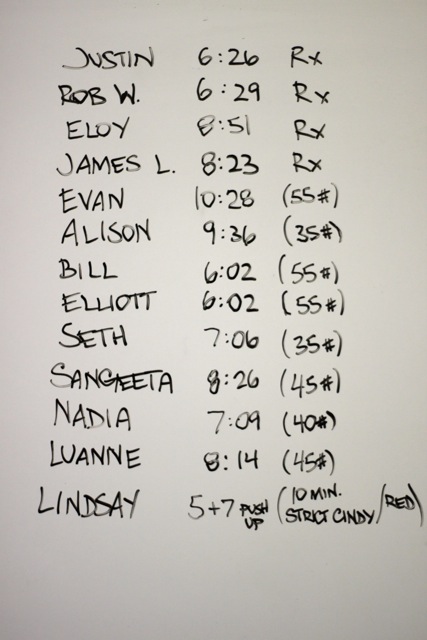 JUSTIN 6:26 Rx
ROB W. 6:29 Rx
ELOY 8:51 Rx
JAMES L. 8:23 Rx
EVAN 10:28 (55#)
ALISON 9:36 (35#)
BILL 6:02 (55#)
ELLIOTT 6:02 (55#)
SETH 7:06 (35#)
SANGEETA 8:26 (45#)
NADIA 7:09 (40#)
LUANNE 8:14 (45#)
LINDSAY 5+7 PUSH UP (10 MIN. STRICT CINDY/RED)